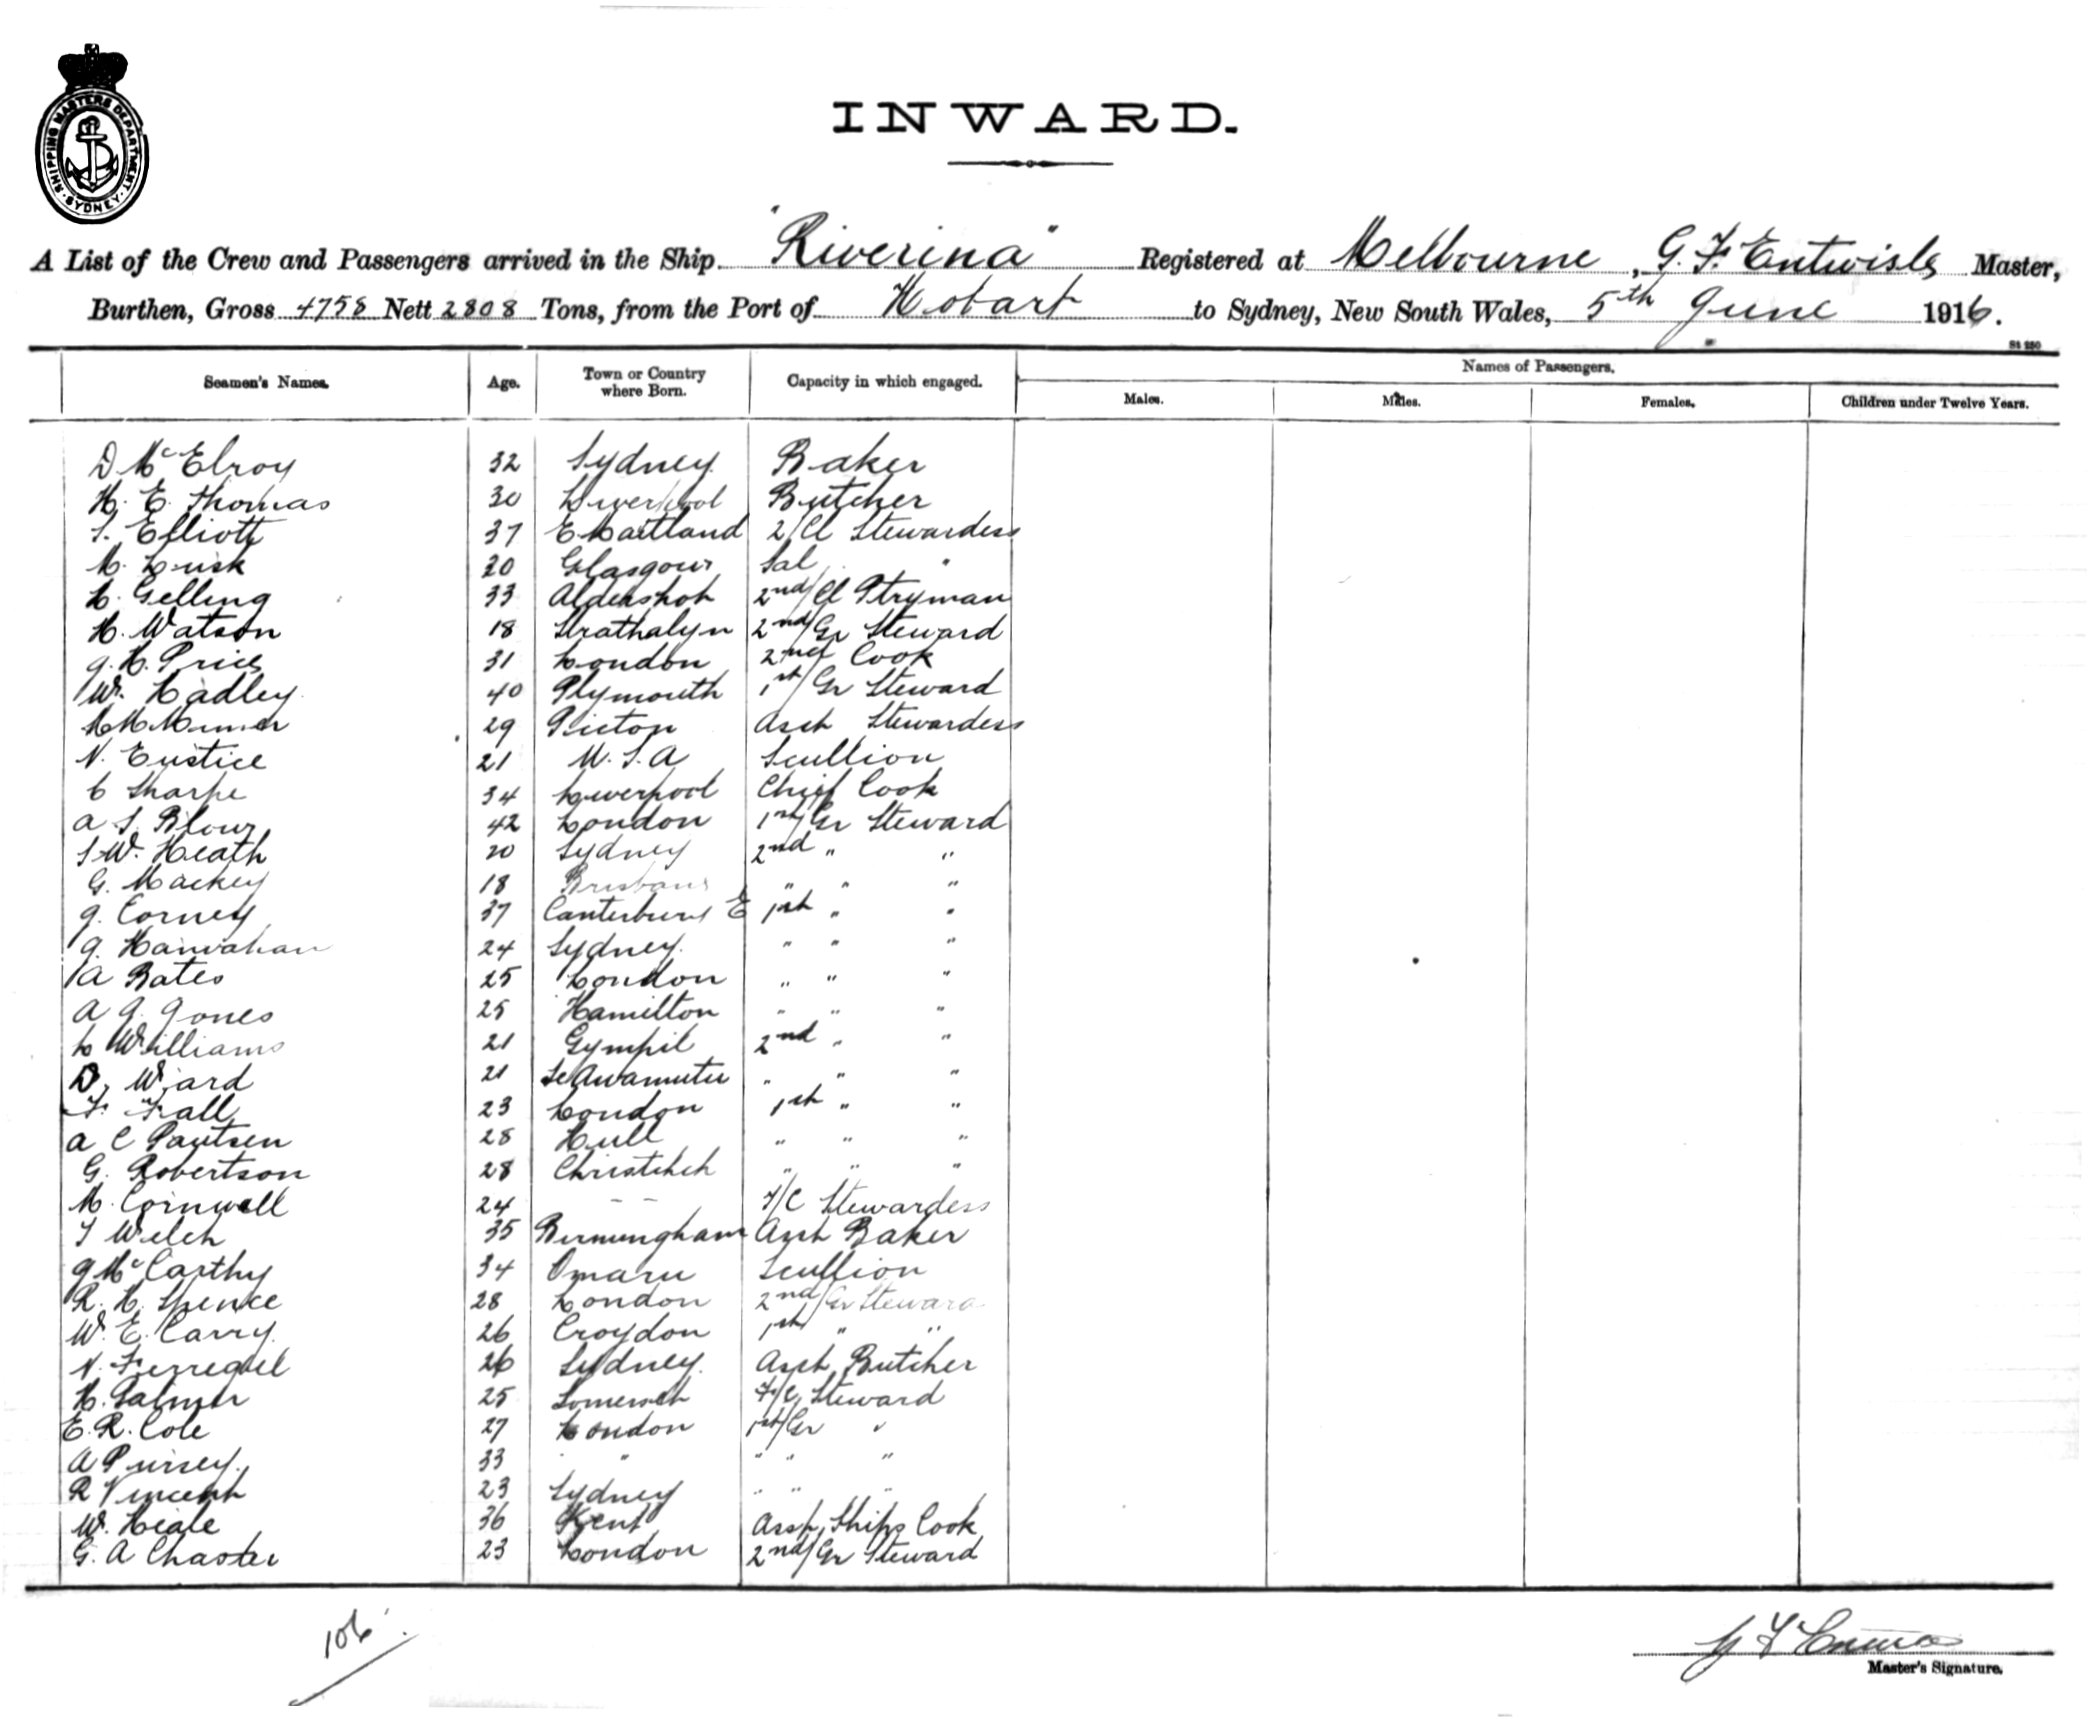 SHIPPING MASTERS DEPARTMENT · SYDNEY ·
INWARD.
A List of the Crew and Passengers arrived in the Ship "Riverina" Registered at Melbourne, G. F. Entwisle Master,
Burthen, Gross 4758 Nett 2808 Tons, from the Port of Hobart to Sydney, New South Wales, 5th June 1916.
St 250
Seamen's Names. Age. Town or Country where Born. Capacity in which engaged. Names of Passengers.
Males. Males. Females. Children under Twelve Years.
D McElroy 32 Sydney Baker
H. E. Thomas 30 Liverpool Butcher
S. Elliott 37 E. Maitland 2/Cl Stewardess
M. Lusk 30 Glasgow Sal "
L. Gelling 33 Aldershot 2nd/Cl Ptryman
H. Watson 18 Strathalyn 2nd/Gr Steward
J. H. Price 31 London 2nd Cook
W. Hadley 40 Plymouth 1st/Gr Steward
29 Picton Asst Stewardess
N. Eustice 21 U.S.A Scullion
C Sharpe 34 Liverpool Chief Cook
A S. Blow 42 London 1st/Gr Steward
S. W. Heath 20 Sydney 2nd " "
G. Mackey 18 Brisbane " " "
J. Corney 37 Canterbury E 1st " "
J. Hanrahan 24 Sydney " " "
A Bates 25 London " " "
A J. Jones 25 Hamilton " " "
L Williams 21 Gympie 2nd " "
D. Ward 21 Te Awamutu " " "
F. Fall 23 London 1st " "
A C Pautsen 28 Hull " " "
G. Robertson 28 Christchch " " "
M. Cornwell 24 - - F/C Stewardess
T Welch 35 Birmingham Asst Baker
J McCarthy 34 Omaru Scullion
R. H. Spence 28 London 2nd/Gr Steward
W. E. Carry 26 Croydon 1st " "
N. 26 Sydney. Asst Butcher
H. Palmer 25 Somerset F/C Steward
E. R. Cole 27 London 1st/Gr "
A Pursey. 33 " " " "
R Vincent 23 Sydney " " "
W. Heale 36 Kent Asst Ships Cook
G. A Chaster 23 London 2nd/Gr Steward
106
G F
Master's Signature.